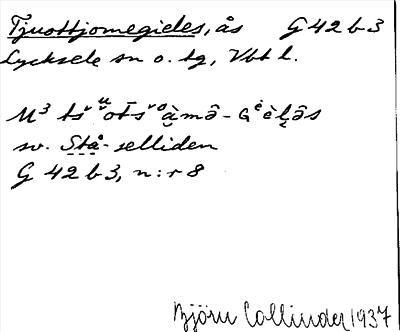 Tjuottjomegieles, ås G 42 b 3
Lycksele sn o. tg, Vbt l.
sv. Stå-selliden
G 42 b 3, n:r 8
Björn Collinder 1937